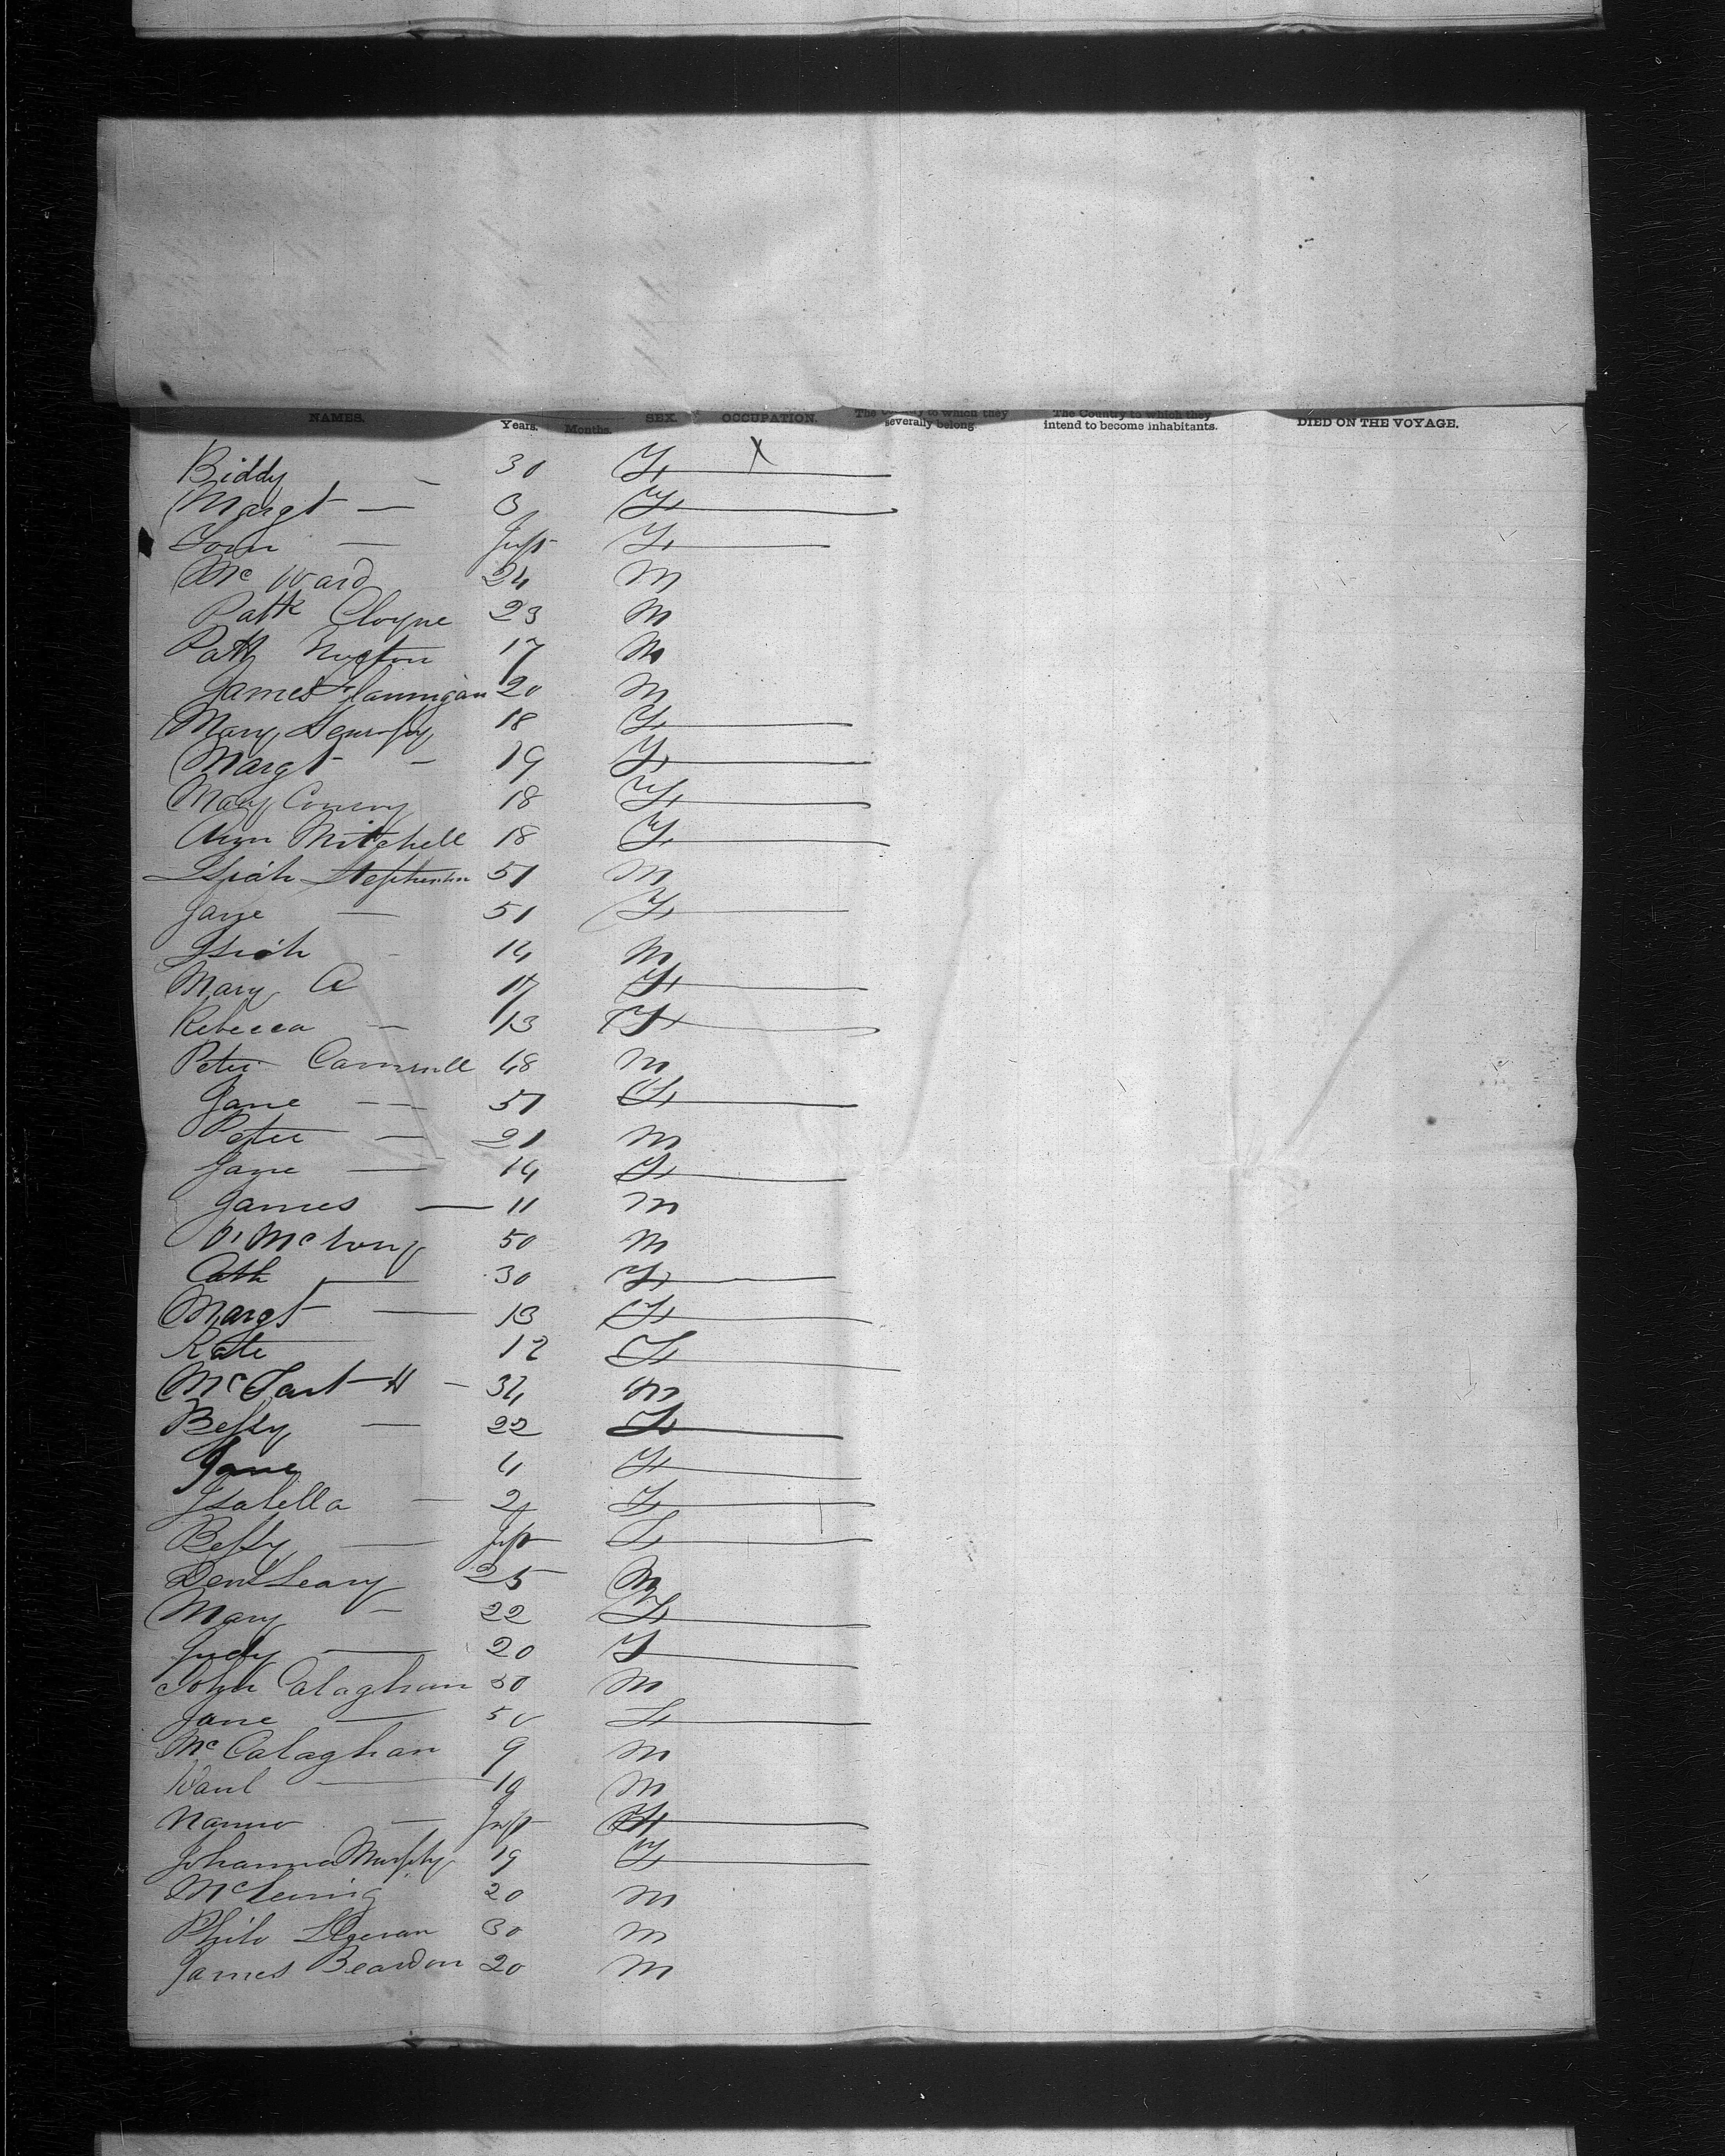 NAMES. Years. Months. SEX. OCCUPATION. The Country to which they severally belong The Country to which they intend to become inhabitants. DIED ON THE VOYAGE.
Biddy — 30 F X
Margt — 3 F
— Inft F
Mc Ward 24 M
Patk Cloyne 23 M
Patk 17 M
James Flannigan 20 M
Mary 18 F
Margt — 19 F
Mary Conroy 18 F
Ann Mitchell 18 F
Isiah Stephenson 51 M
Jane — 51 F
Isiah - 14 M
Mary A 17 F
Rebecca — 13 F
Peter 48 M
Jane — 51 F
Peter — 21 M
Jane — 14 F
James — 11 M
50 M
Cath — 30 F
Margt — 13 F
Kate 12 F
34 M
Bessy — 22 F
Jane 4 F
Isabella — 2 F
Bessy — Inft F
Denl Leary 25 M
Mary — 22 F
Judy — 20 F
John Calaghan 50 M
Jane — 50 F
Mc Calaghan 9 M
— 19 M
— Inft F
Johanna Murphy 19 F
20 M
30 M
James Beardon 20 M